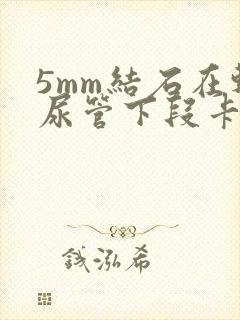 5mm結石在
尿管下段卡
錢泓希